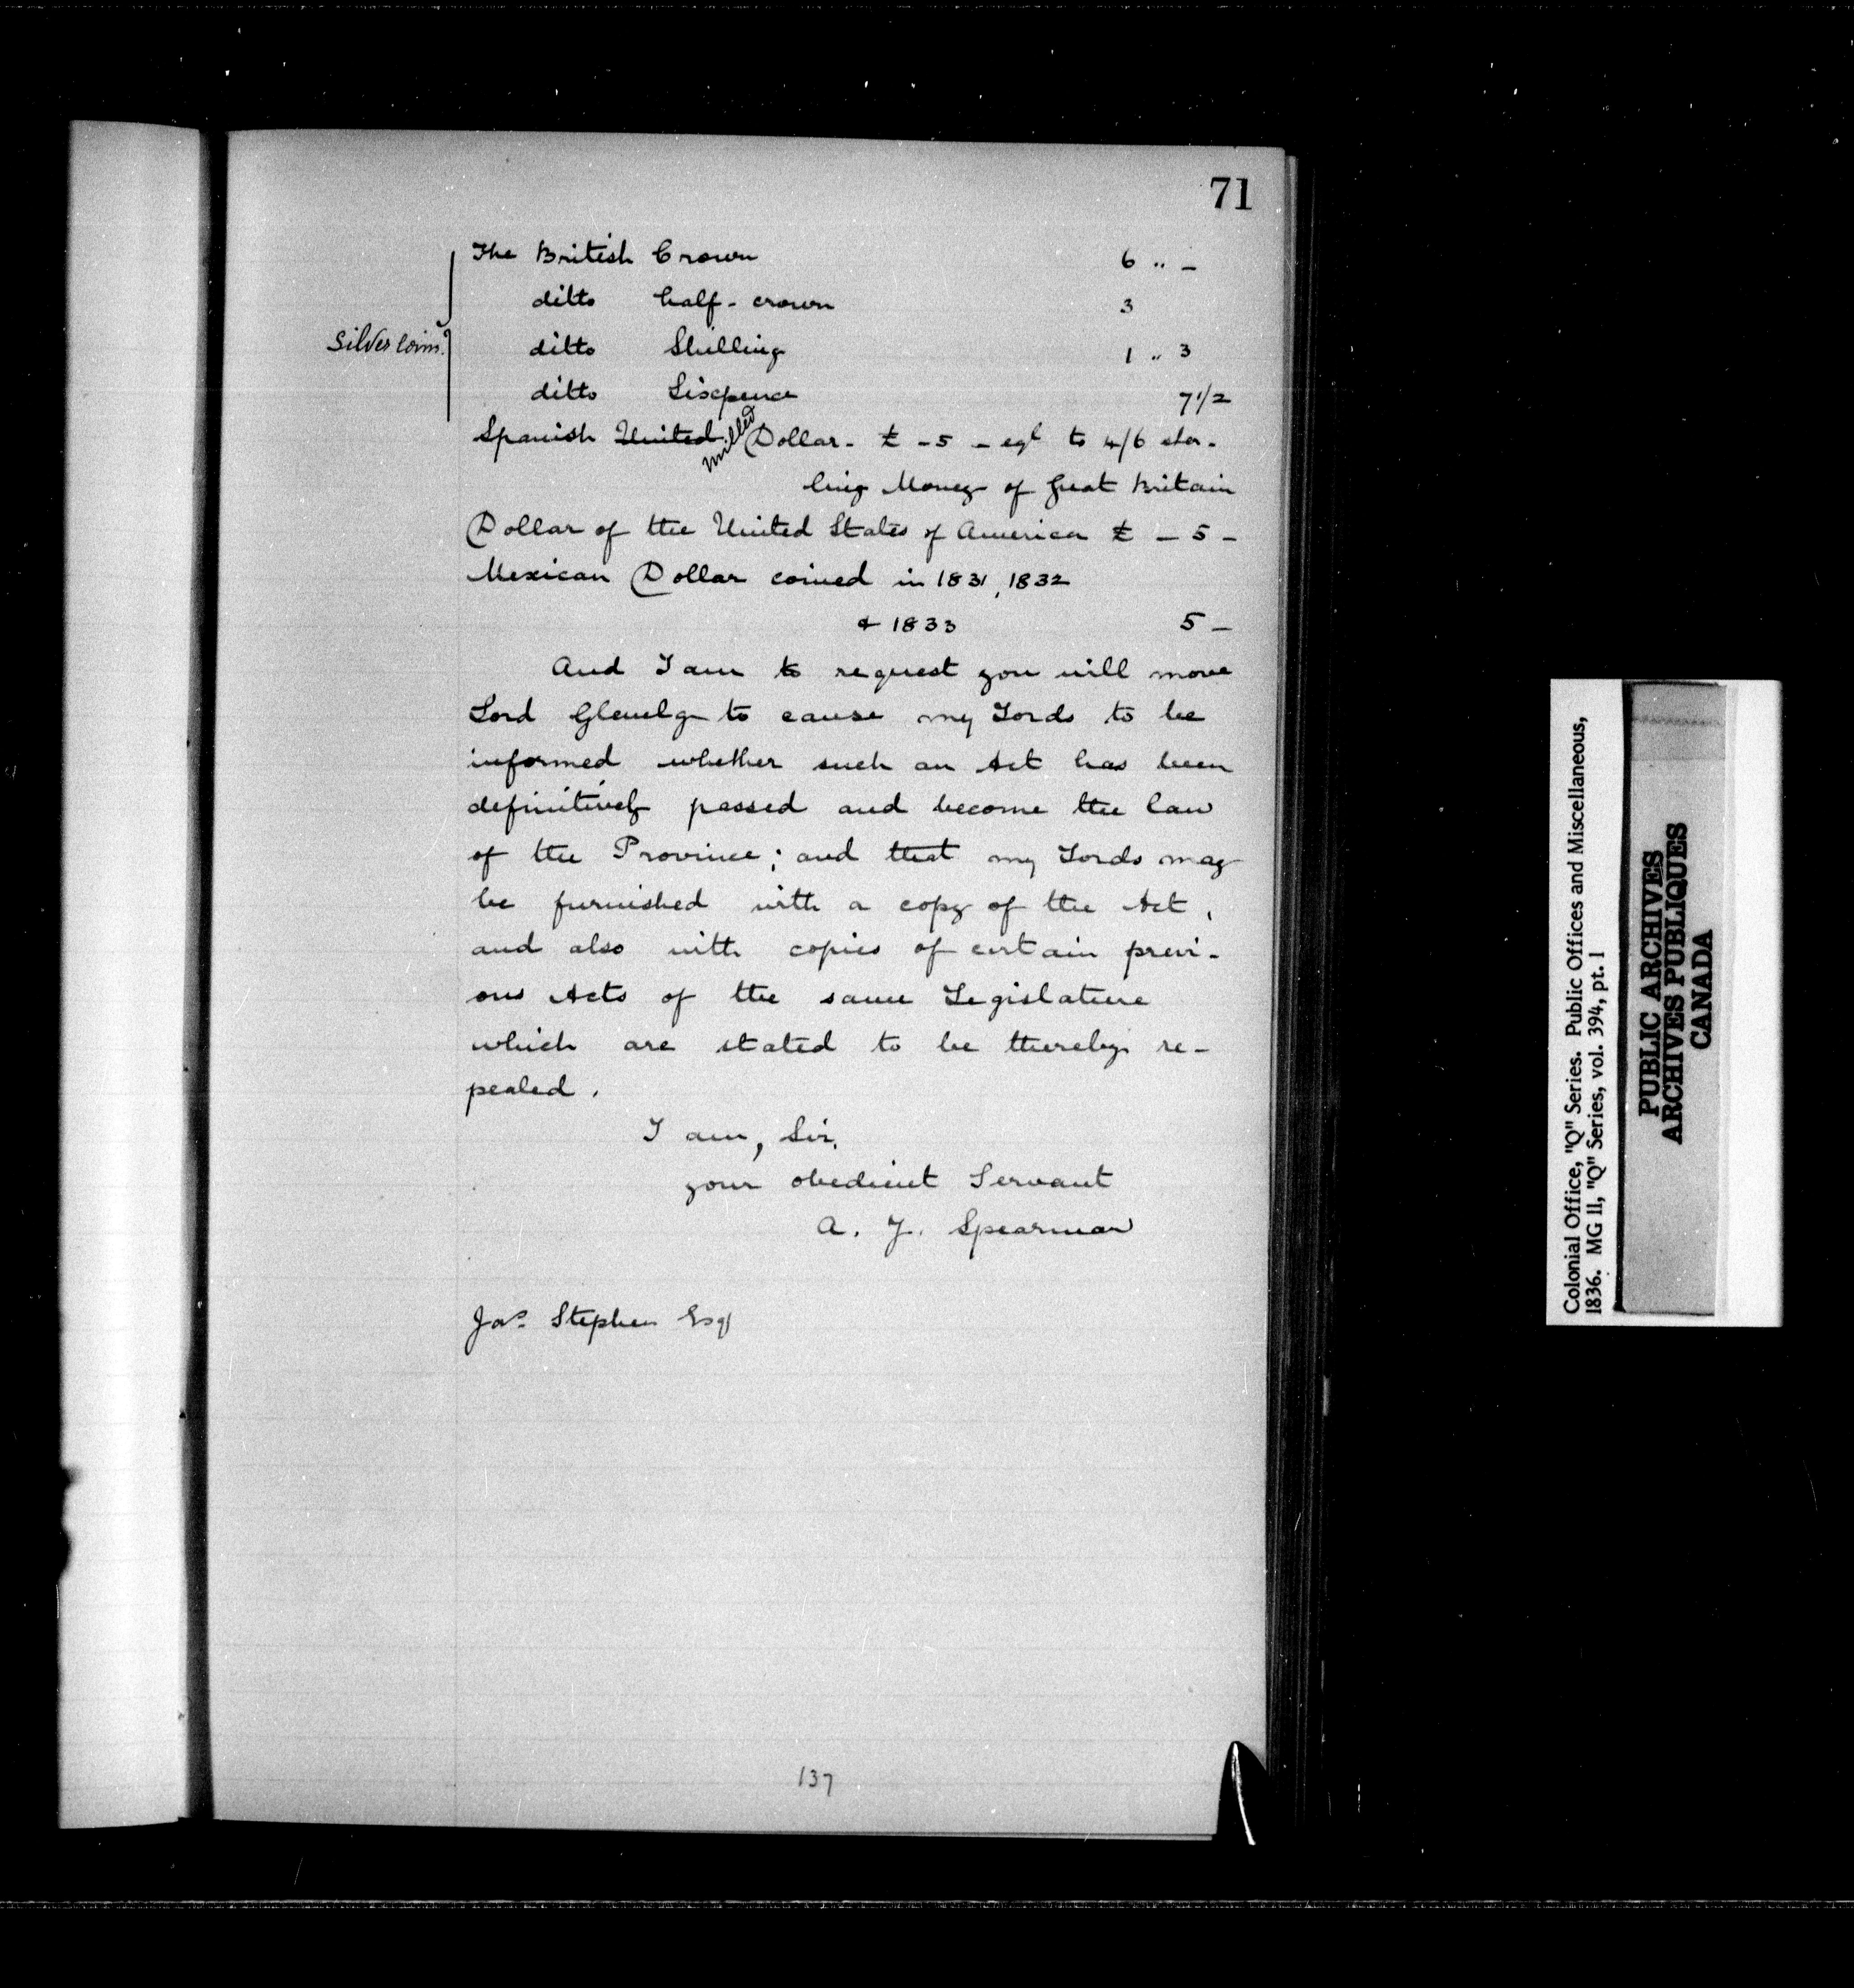 71
The British Crown 6 " -
ditto half-crown 3
Silver Coins. ditto Shilling 1 " 3
ditto Sixpence 7 1/2
Spanish United milled Dollar - £ - 5 - eql to 4/6 ster-
ling Money of Great Britain
Dollar of the United States of America £ - 5 -
Mexican Dollar coined in 1831, 1832
& 1833 5 -
And I am to request you will move
Lord Glenelg to cause my Lords to be
informed whether such an Act has been
definitively passed and become the law
of the Province; and that my Lords may
be furnished with a copy of the Act,
and also with copies of certain previ-
ous Acts of the same Legislature
which are stated to be thereby re-
pealed.
I am, Sir,
your obedient Servant
A. Y. Spearman
Jas. Stephen Esq
137
Colonial Office, "Q" Series. Public Offices and Miscellaneous,
1836. MG 11, "Q" Series, vol. 394, pt. 1
PUBLIC ARCHIVES
ARCHIVES PUBLIQUES
CANADA